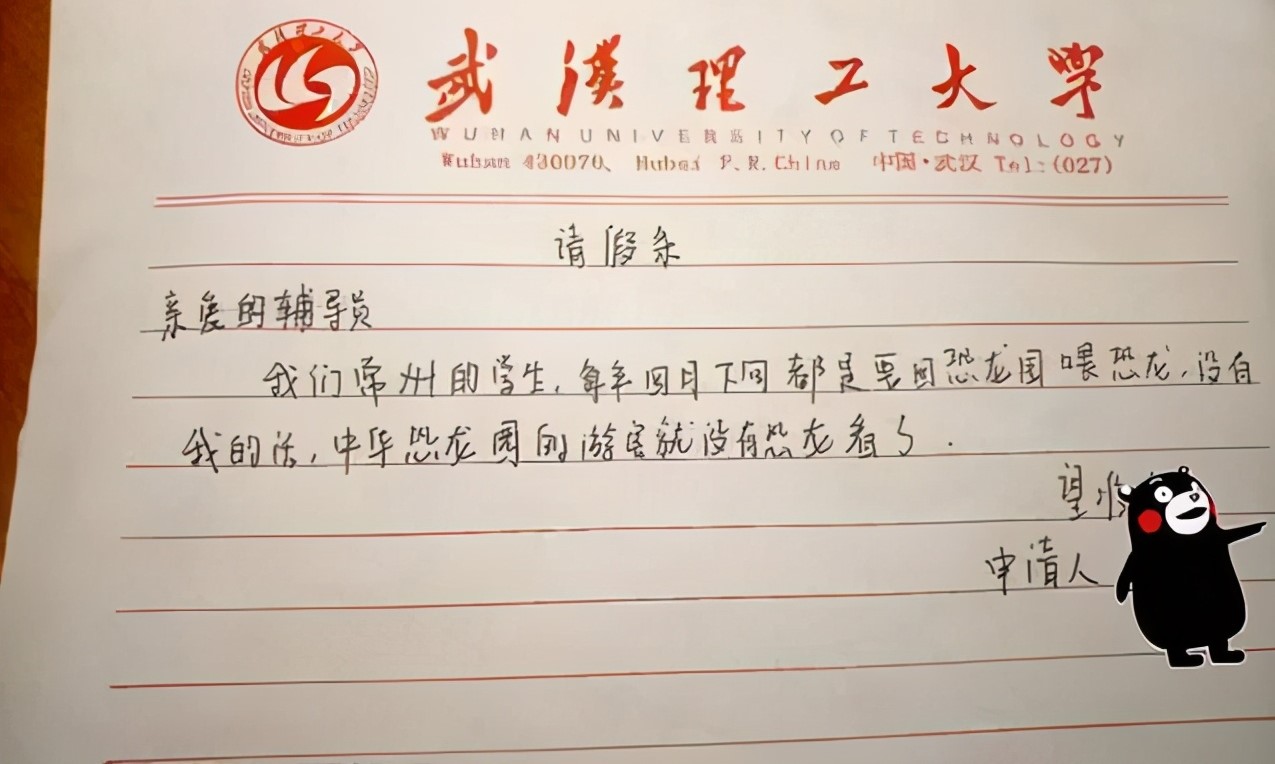 武汉理工大学
WUHAN UNIVERSITY OF TECHNOLOGY
430070、 Hubei P.R.China 中国·武汉 Tel:(027)
请假条
亲爱的辅导员
我们常州的学生，每年四月下旬都是要回恐龙园喂恐龙，没有
我的话，中华恐龙园的游客就没有恐龙看了.
望
申请人